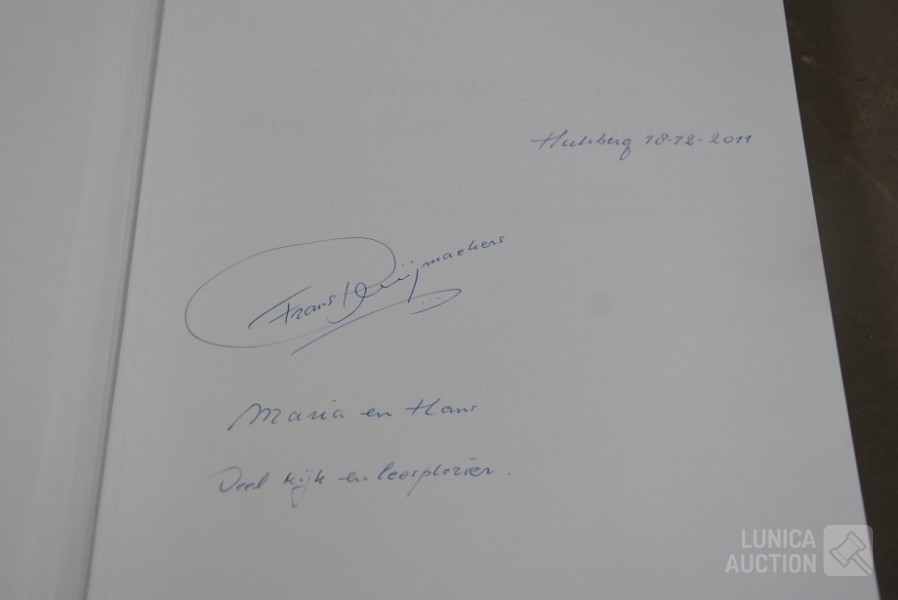 Hulsberg 18-12-2011
Frans Duijmaekers
Maria en Hans
Veel kijk en leesplezier.
LUNICA
AUCTION